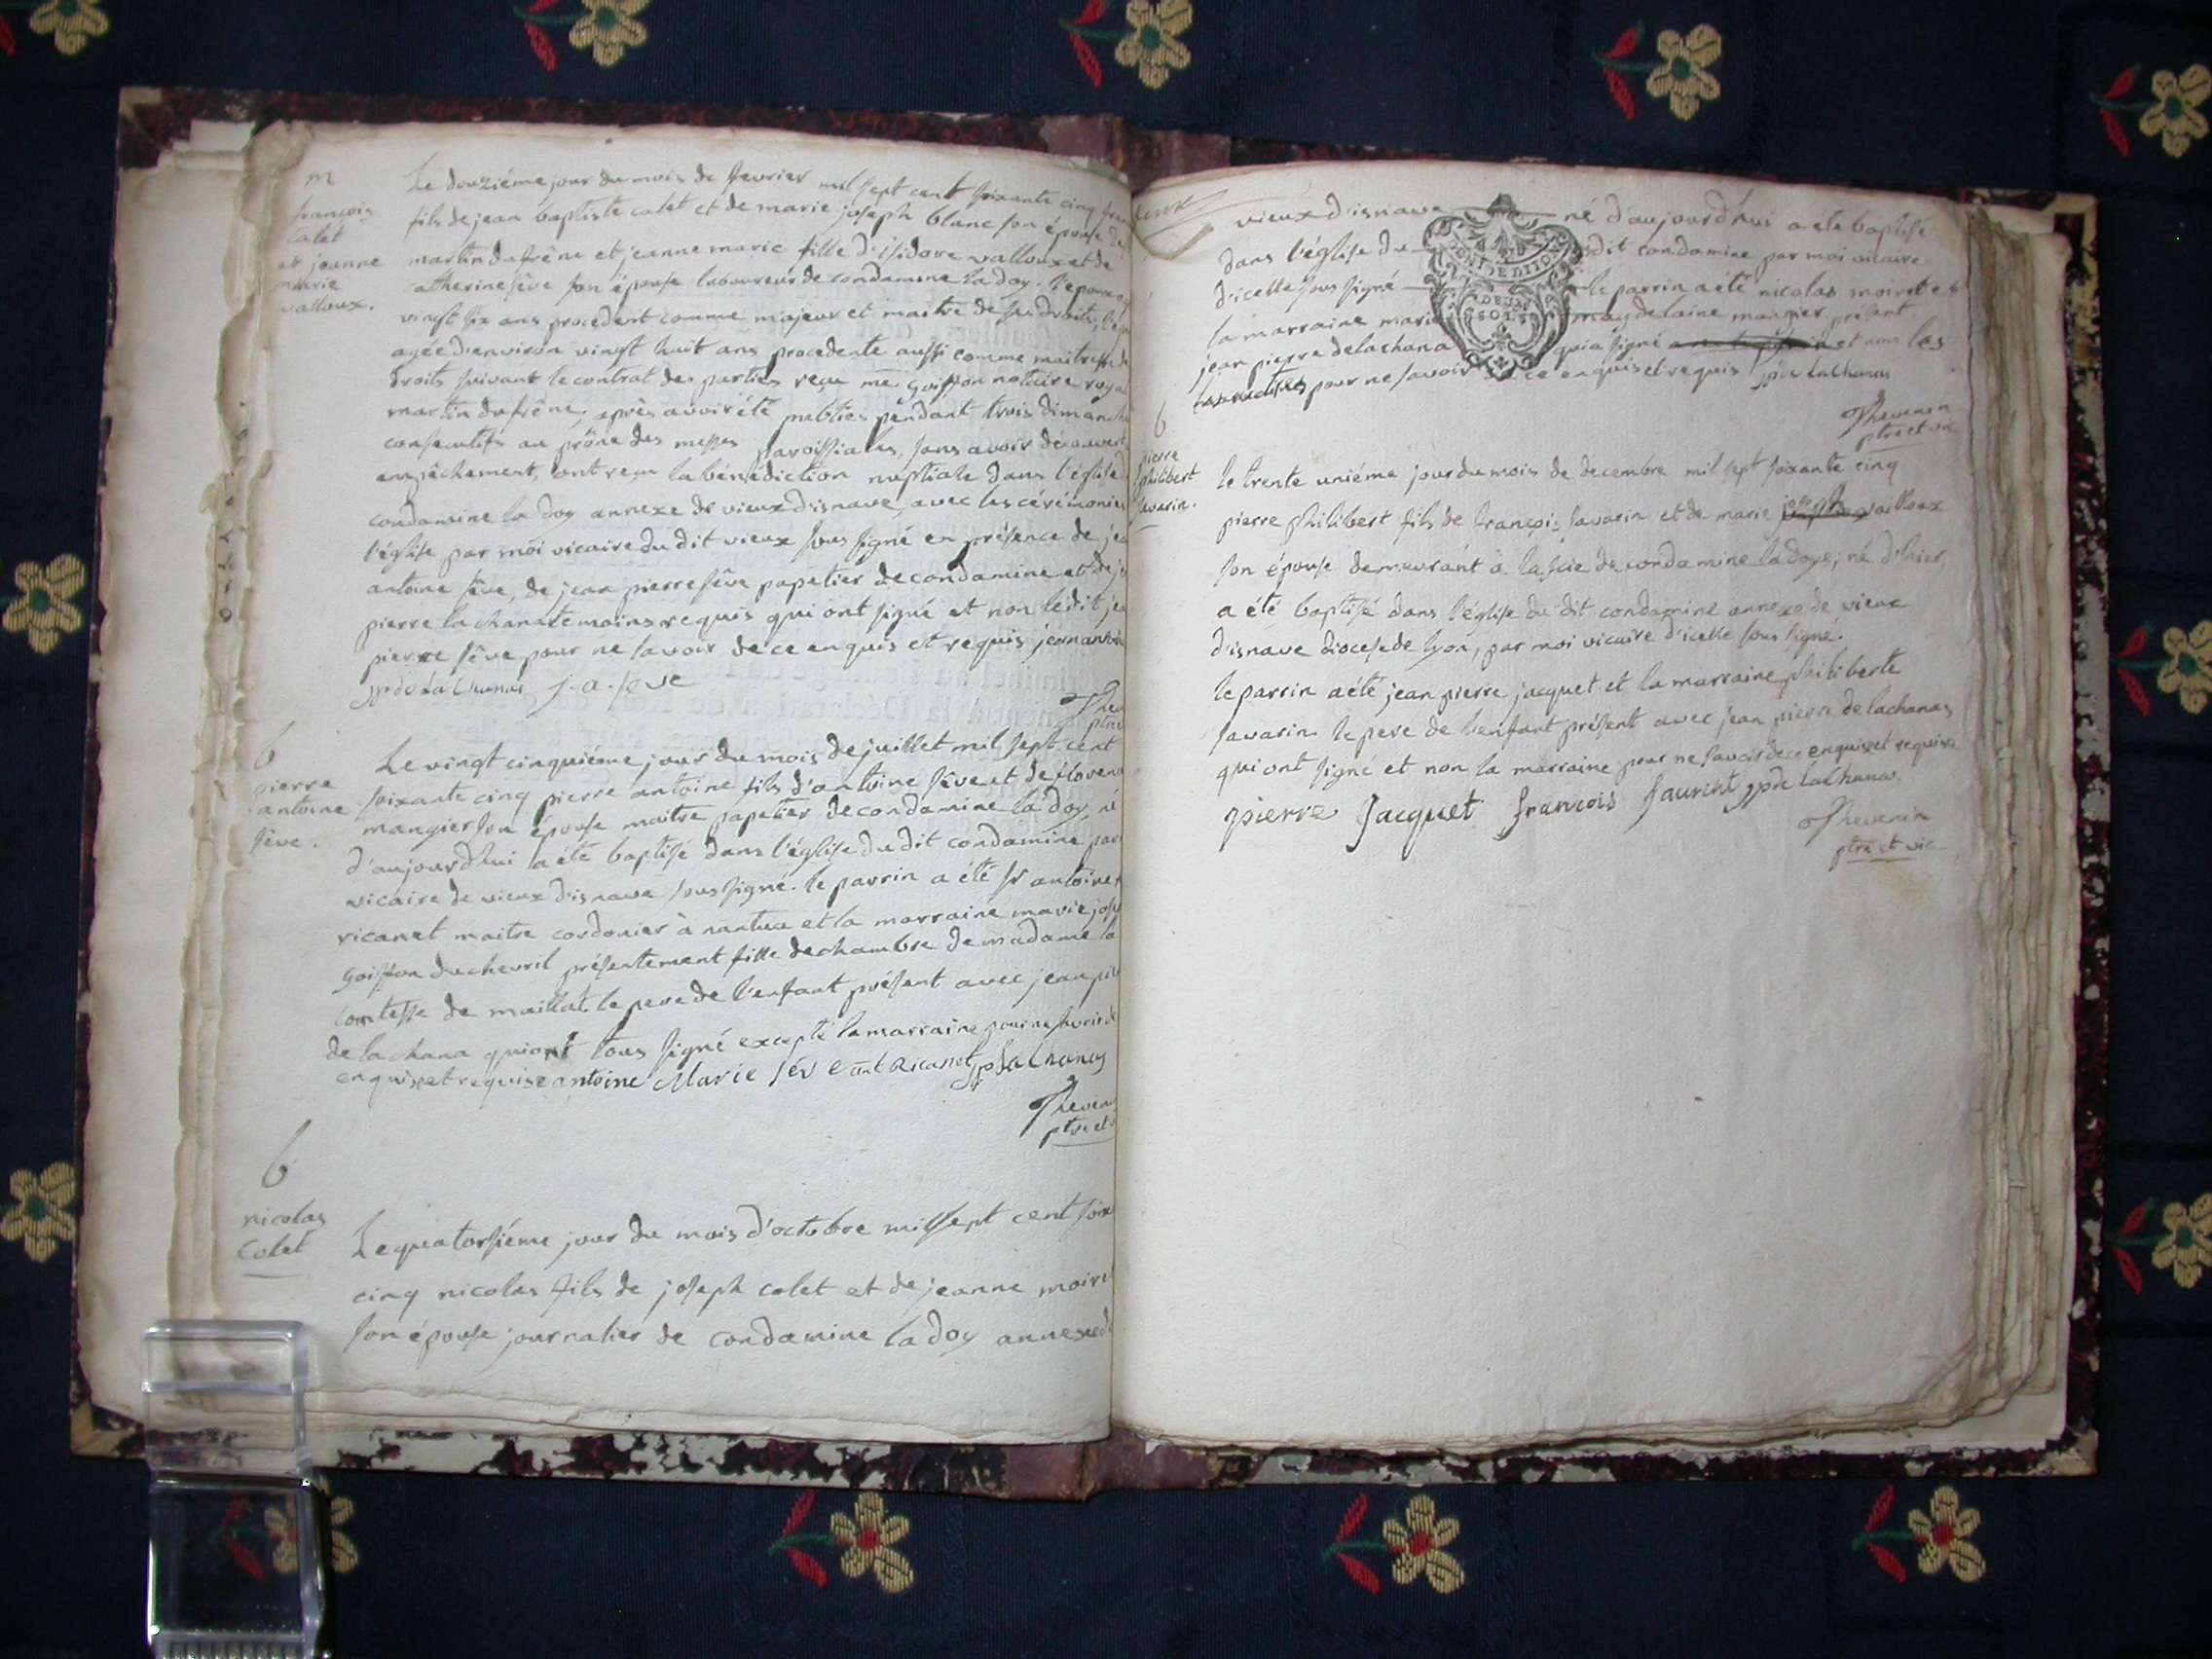 m
françois
calet
et jeanne
marie
valloux.
Le douziéme jour du mois de fevrier mil sept cent soixante cinq
fils de jean baptiste calet et de marie joseph blanc son épouse de
martin du frêne et jeanne marie fille d'isidore valloux et de
catherine sêve son épouse laboureur de condamine la doy. l'epoux
vingt six ans procedent comme majeur et maitre de ses droits,
agée d'environ vingt huit ans procedente aussi comme maitresse de
droits suivant le contrat des parties reçu me. goiffon notaire
martin du frêne, après avoir été publiés pendant trois dimanches
consecutifs au prône des messes paroissiales, sans avoir découvert
empêchement, ont reçu la bénédiction nuptiale dans l'église
condamine la doy annexe de vieux d'isnave, avec les cérémonies
l'église par moi vicaire du dit vieux sous signé en présence de
antoine sêve, de jean pierre sêve papetier de condamine et de
pierre la chana temoins requis qui ont signé et non le dit
pierre sêve pour ne savoir de ce enquis et requis
j. a. seve
b
pierre
antoine
sêve.
Le vingt cinquiéme jour du mois de juillet mil sept cent
soixante cinq pierre antoine fils d'antoine sêve et de
mangier son épouse maitre papetier de condamine la doy, né
d'aujourd'hui a été baptisé dans l'église du dit condamine par
vicaire de vieux d'isnave sous signé. le parrin a été sr antoine
ricanet maitre cordonier à nantua et la marraine marie
goiffon du chevril présentement fille de chambre de madame la
comtesse de maillat. le pere de l'enfant présent avec jean
de la chana qui ont tous signé excepté la marraine pour ne savoir de
enquise et requise antoine Marie sêve ant Ricanet
b
nicolas
Colet
Le quatorsiéme jour du mois d'octobre mil sept cent
cinq nicolas fils de joseph colet et de jeanne
son épouse journalier de condamine la doy annexe
vieux d'isnave né d'aujourd'hui a été baptisé
dans l'église du dit condamine par moi vicaire
DEUX
SOLS
d'icelle sous signé le parrin a été nicolas
la marraine marie magdelaine mangier présent
jean pierre delachana qui a signé et non les
pour ne savoir de ce enquis et requis
Thevenin
ptre et vic
b
pierre
philibert
savarin.
le trente uniéme jour du mois de decembre mil sept soixante cinq
pierre philibert fils de françois savarin et de marie vailloux
son épouse demeurant à la scie de condamine la doye, né d'hier,
a été baptisé dans l'église du dit condamine annexe de vieux
d'isnave diocese de lyon, par moi vicaire d'icelle sous signé.
le parrin a été jean pierre jacquet et la marraine philiberte
savarin le pere de l'enfant présent avec jean pierre de lachanas
qui ont signé et non la marraine pour ne savoir de ce enquise et requise
pierre Jacquet françois de lachanas
Thevenin
ptre et vic